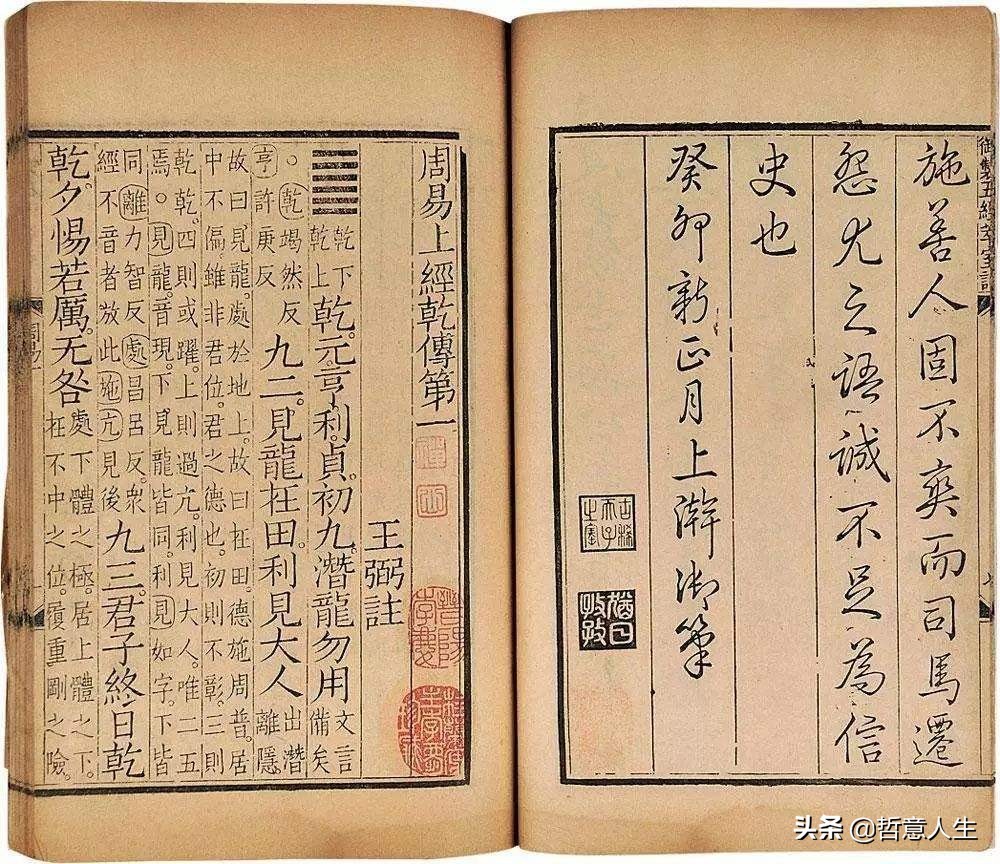 御製五經萃室記
施善人固不爽而司馬遷
怨尤之語誠不足為信
史也
癸卯新正月上澣御筆
古稀天子之寶
猶日孜孜
周易上經乾傳第一
王弼註
䷀乾下乾上乾。元亨。利。貞。初九。潛龍勿用文言備矣
。乾竭然反亨許庚反九二。見龍在田。利見大人出潛離隱。
故曰見龍。處於地上。故曰在田。德施周普。居
中不偏。雖非君位。君之德也。初則不彰。三則
乾乾。四則或躍。上則過亢。利見大人。唯二五
焉。見龍。音現。下見龍皆同。利見如字。下皆
同離力智反處昌呂反。衆經不音者放此施亢見後九三。君子終日乾
乾。夕惕若厲。无咎處下體之極。居上體之下。在不中之位。履重剛之險。
周易一
头条 @哲意人生